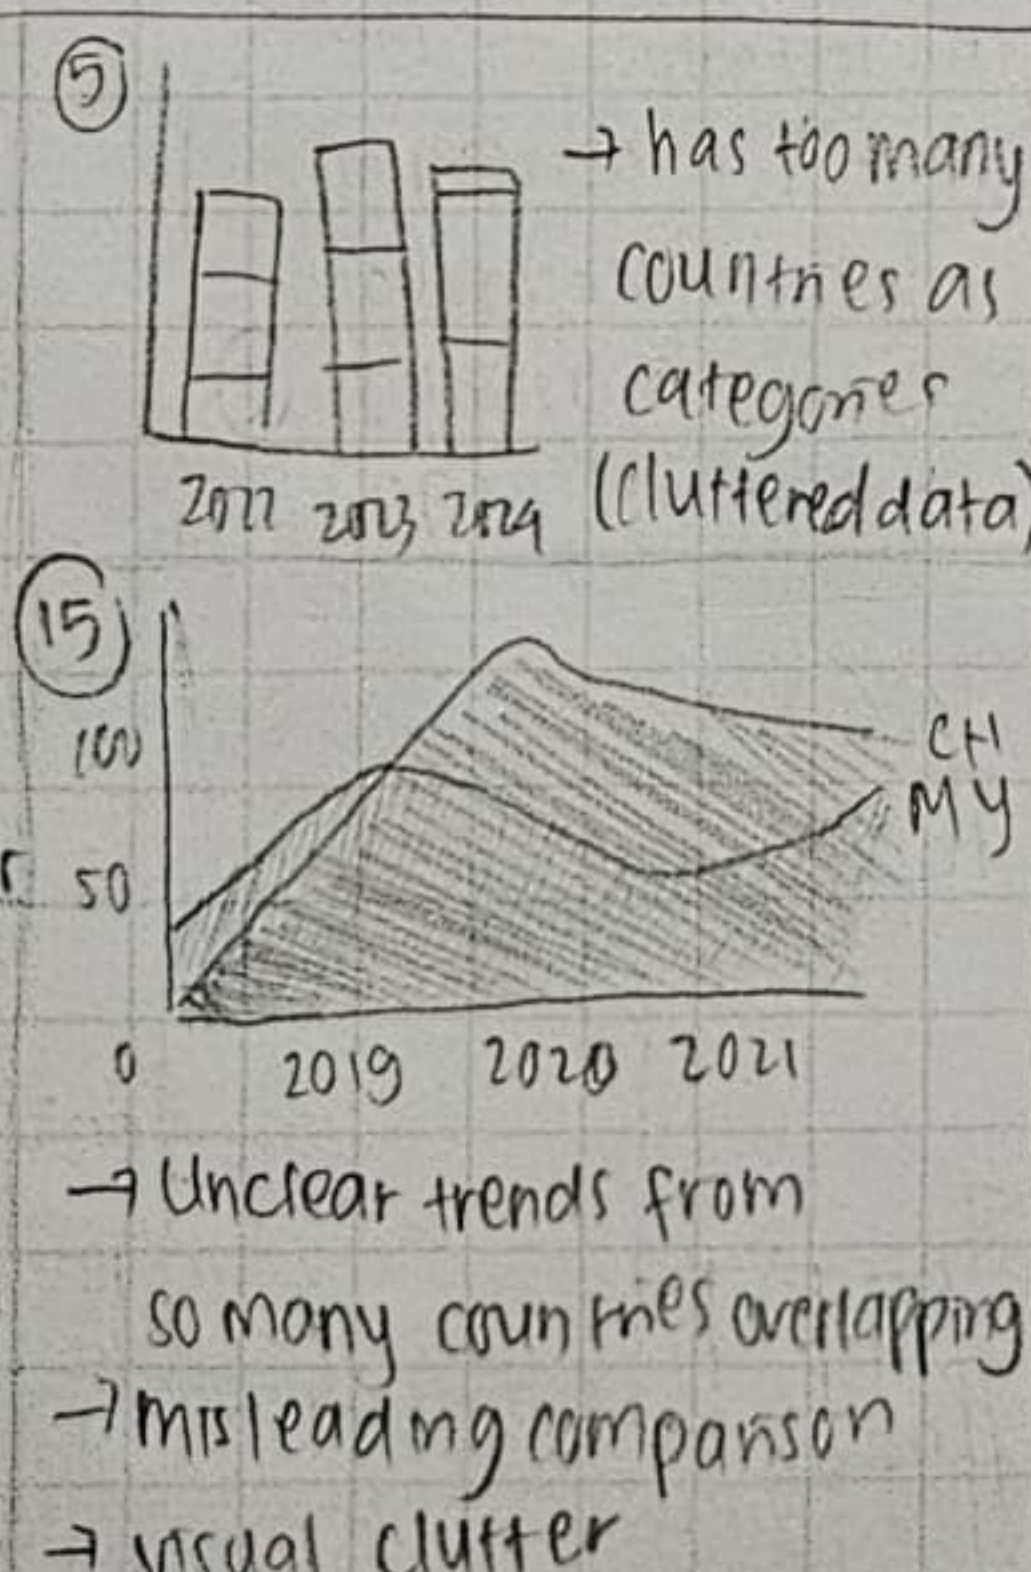 5
→ has too many
countries as
categories
(cluttered data)
2022 2023 2024
15
100
CH
MY
r 50
0 2019 2020 2021
→ Unclear trends from
so many countries overlapping
→ misleading comparison
→ visual clutter